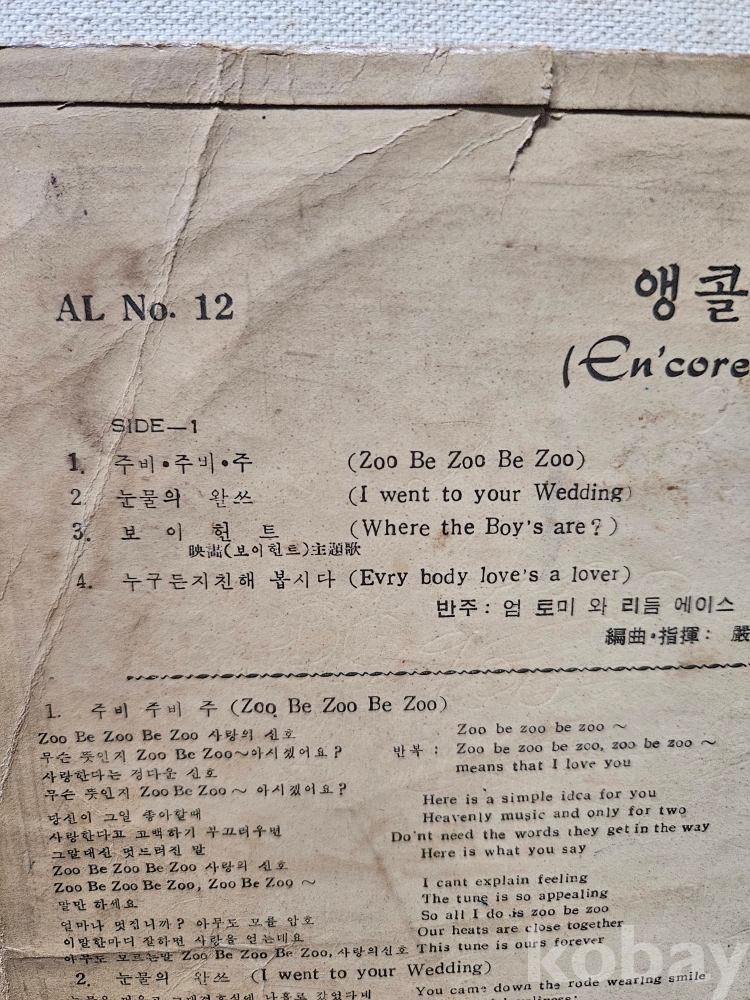 AL No. 12
앵콜
(En'core
SIDE—1
1. 주비•주비•주 (Zoo Be Zoo Be Zoo)
2. 눈물의 왈쓰 (I went to your Wedding)
3. 보이헌트 (Where the Boy's are?)
映畵(보이헌트)主題歌
4. 누구든지친해 봅시다 (Evry body love's a lover)
반주: 엄 토미 와 리듬 에이스
編曲•指揮: 嚴
1. 주비 주비 주 (Zoo Be Zoo Be Zoo)
Zoo Be Zoo Be Zoo 사랑의 신호
무슨 뜻인지 Zoo Be Zoo~아시겠어요?
사랑한다는 정다운 신호
무슨 뜻인지 Zoo Be Zoo ~ 아시겠어요?
당신이 그일 좋아할때
사랑한다고 고백하기 부끄러우면
그말대신 멋드러진 말
Zoo Be Zoo Be Zoo 사랑의 신호
Zoo Be Zoo Be Zoo, Zoo Be Zoo ~
말만 하세요
얼마나 멋집니까? 아무도 모를 암호
이말한마디 잘하면 사랑을 얻는데요
아무도 모르는말 Zoo Be Zoo Be Zoo, 사랑의신호
Zoo be zoo be zoo ~
반복 : Zoo be zoo be zoo, zoo be zoo ~
means that I love you
Here is a simple idea for you
Heavenly music and only for two
Do'nt need the words they get in the way
Here is what you say
I cant explain feeling
The tune is so appealing
So all I do is zoo be zoo
Our heats are close together
This tune is ours forever
2. 눈물의 왈쓰 (I went to your Wedding)
You came down the rode wearing smile
kobay